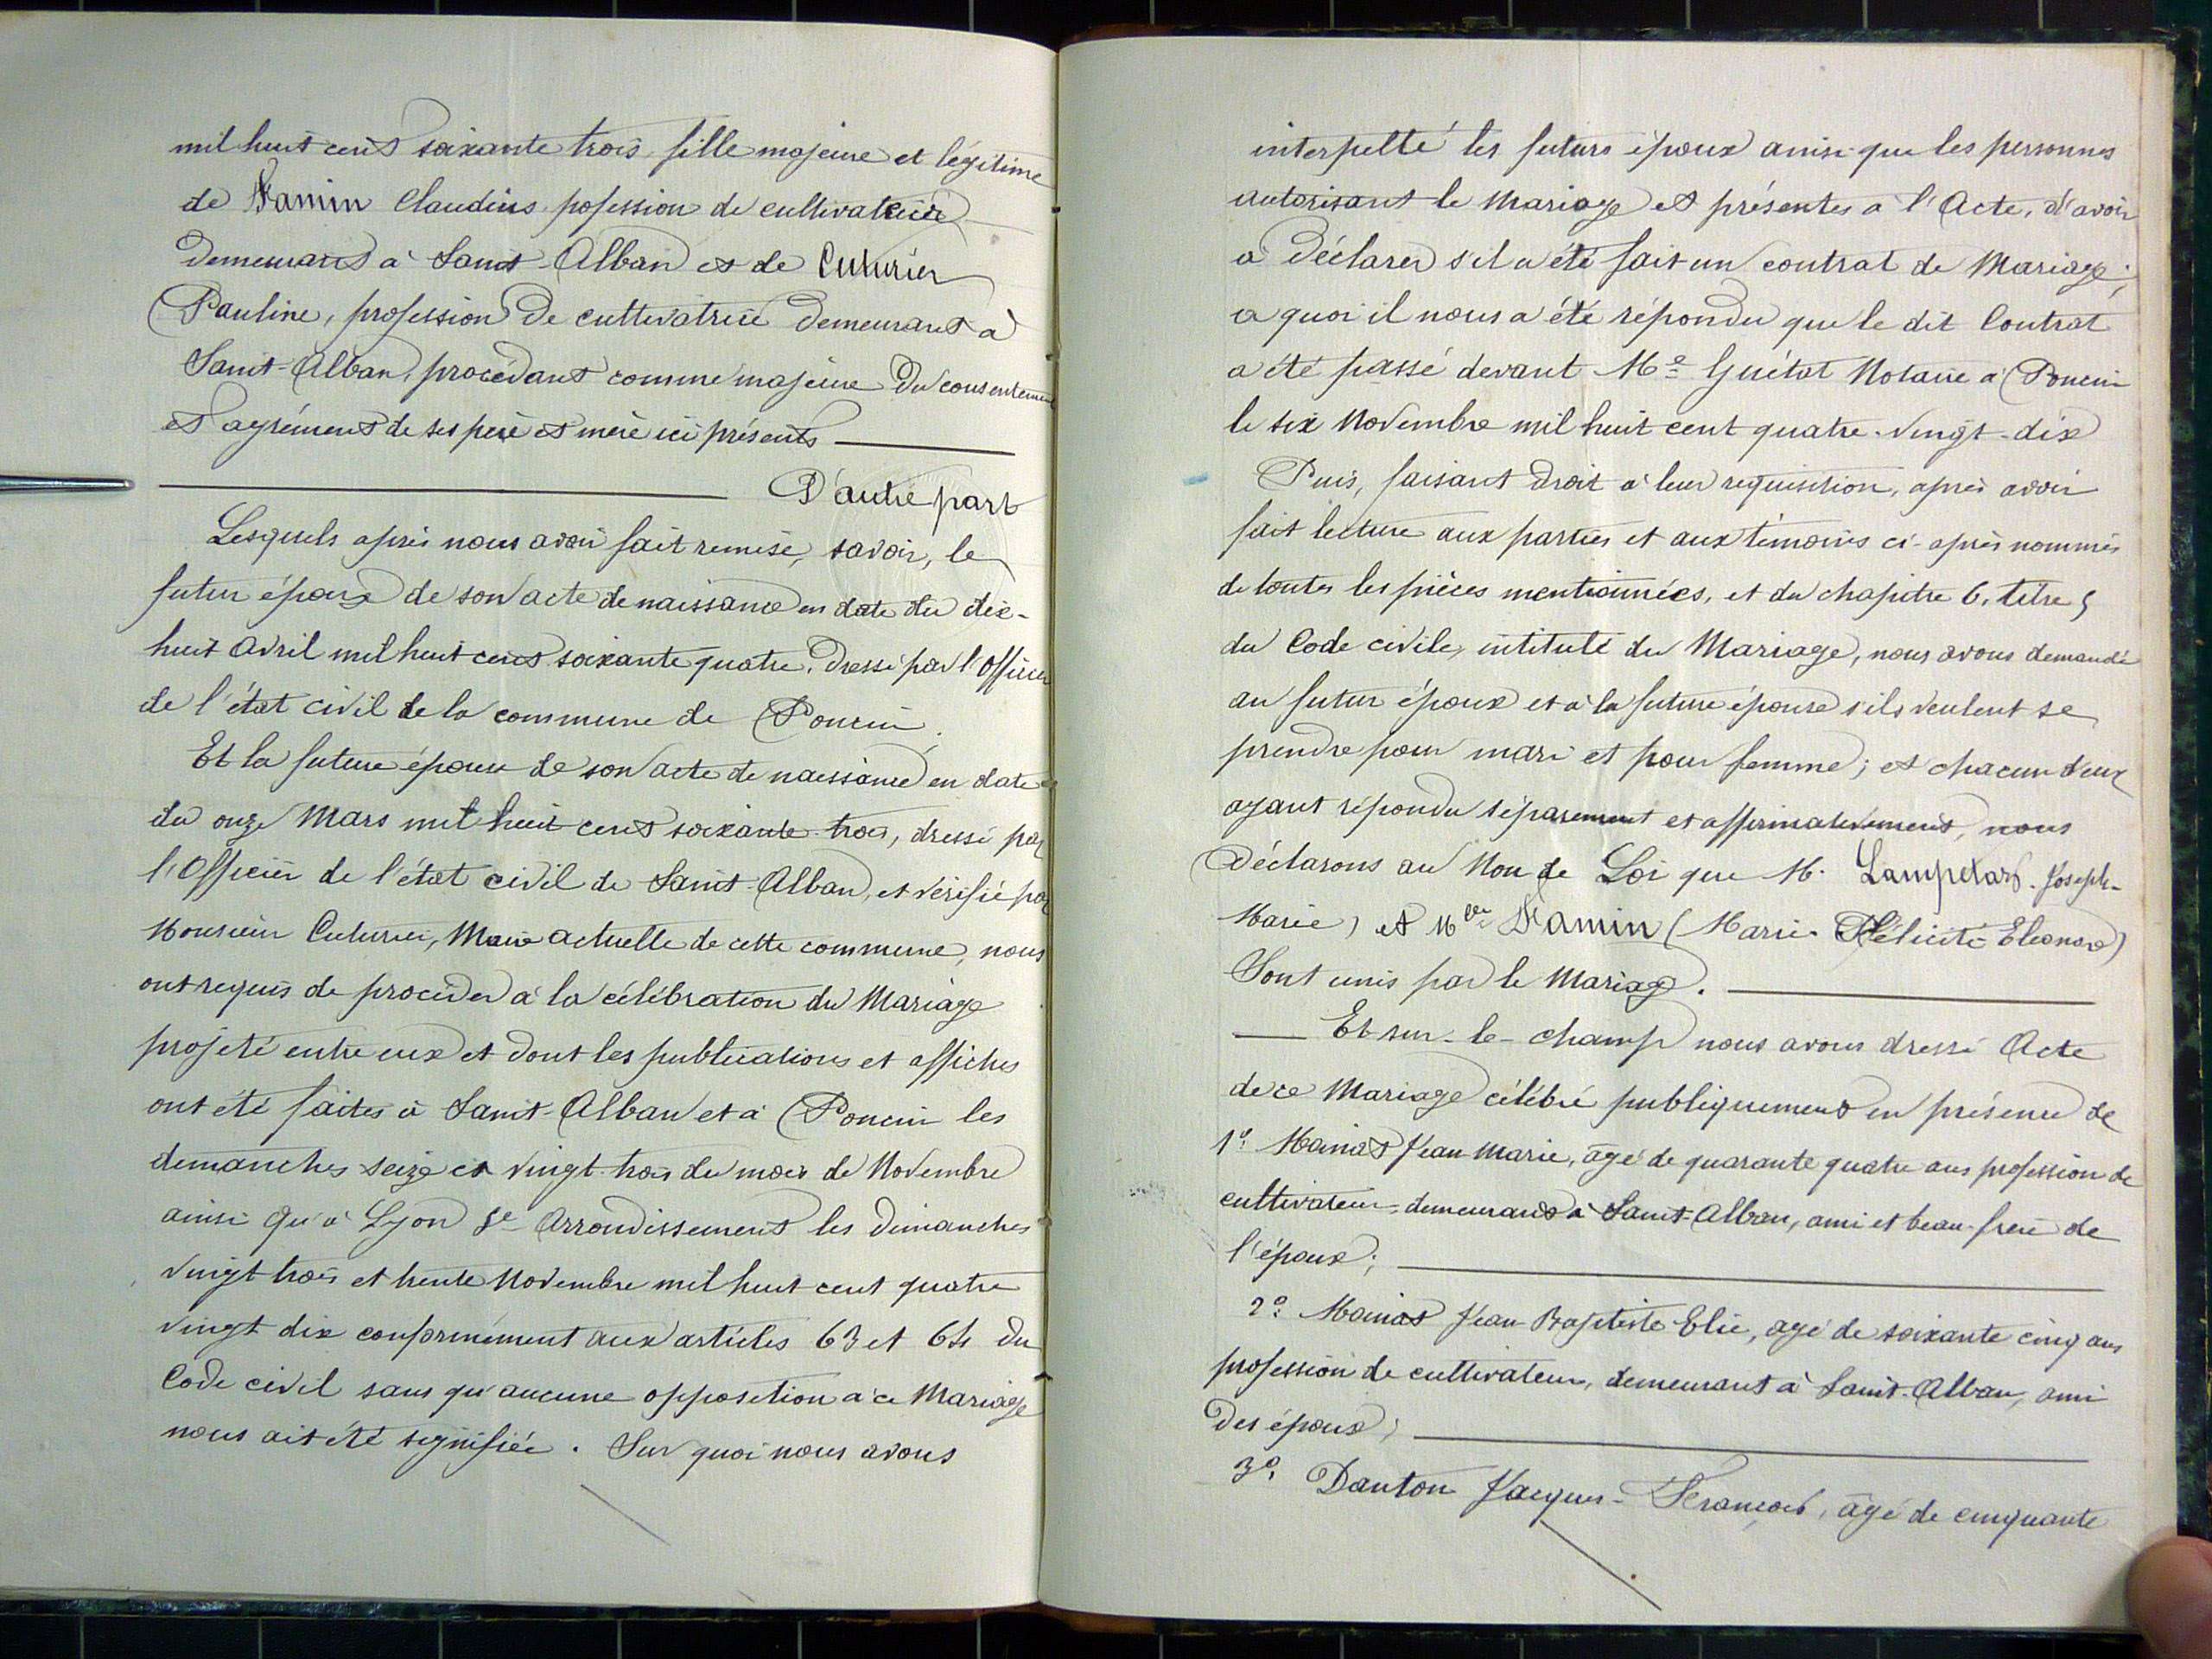 mil huit cent soixante trois, fille majeure et légitime
de Famin Claudius, pofession de cultivateur
demeurant à Saint-Alban et de Cuturier
Pauline, profession de cultivatrice demeurant à
Saint-Alban, procédant comme majeure du consentement
et agrément de ses père et mère ici présents
D'autre part
Lesquels après nous avoir fait remise, savoir, le
futur époux de son acte de naissance en date du dix-
huit Avril mil huit cent soixante quatre, dressé par l'Officier
de l'état civil de la commune de Poncin.
Et la future épouse de son acte de naissance en date
du onze Mars mil huit cent soixante-trois, dressé par
l'Officier de l'état civil de Saint-Alban, et vérifié par
Monsieur Cuturier, Maire actuelle de cette commune, nous
ont requis de procéder à la célébration du Mariage
projeté entre eux et dont les publications et affiches
ont été faites à Saint-Alban et à Poncin les
demanches seize et vingt-trois du mois de Novembre
ainsi qu'à Lyon Arrondissement les dimanches
vingt trois et trente Novembre mil huit cent quatre
vingt dix conformément aux articles 63 et 64 du
Code civil sans qu'aucune opposition à ce Mariage
nous ait été signifiée. Sur quoi nous avons
interpellé les futurs époux ainsi que les personnes
autorisant le Mariage et présentes à l'Acte, d'avoir
à Déclarer s'il a été fait un contrat de Mariage;
a quoi il nous a été répondu que le dit Contrat
a été passé devant Me Guétat Notaire à Poncin
le six Novembre mil huit cent quatre-vingt-dix
Puis, faisant droit à leur requisition, après avoir
fait lecture aux parties et aux témoins ci-après nommés
de toutes les pièces mentionnées, et du chapitre 6, titre 5
du Code civile, intitulé du Mariage, nous avons demandé
au futur époux et à la future épouse s'ils veulent se
prendre pour mari et pour femme; et chacun d'eux
ayant répondu séparement et affirmativement, nous
Déclarons au Nom de Loi que M. Lampelas Joseph-
Marie) et Mlle Famin (Marie-Félicité Eléonore)
Sont unis par le Mariage.
Et sur-le-champ nous avons dressé Acte
de ce Mariage célébré publiquement en présence de
1° Mainas Jean Marie, âgé de quarante quatre ans profession de
cultivateur, demeurant à Saint-Alban, ami et beau-frère de
l'époux;
2° Mainas Jean-Baptiste Elie, agé de soixante cinq ans
profession de cultivateur, demeurant à Saint-Alban, ami
Des époux;
3° Danton Jacques-François, âgé de cinquante